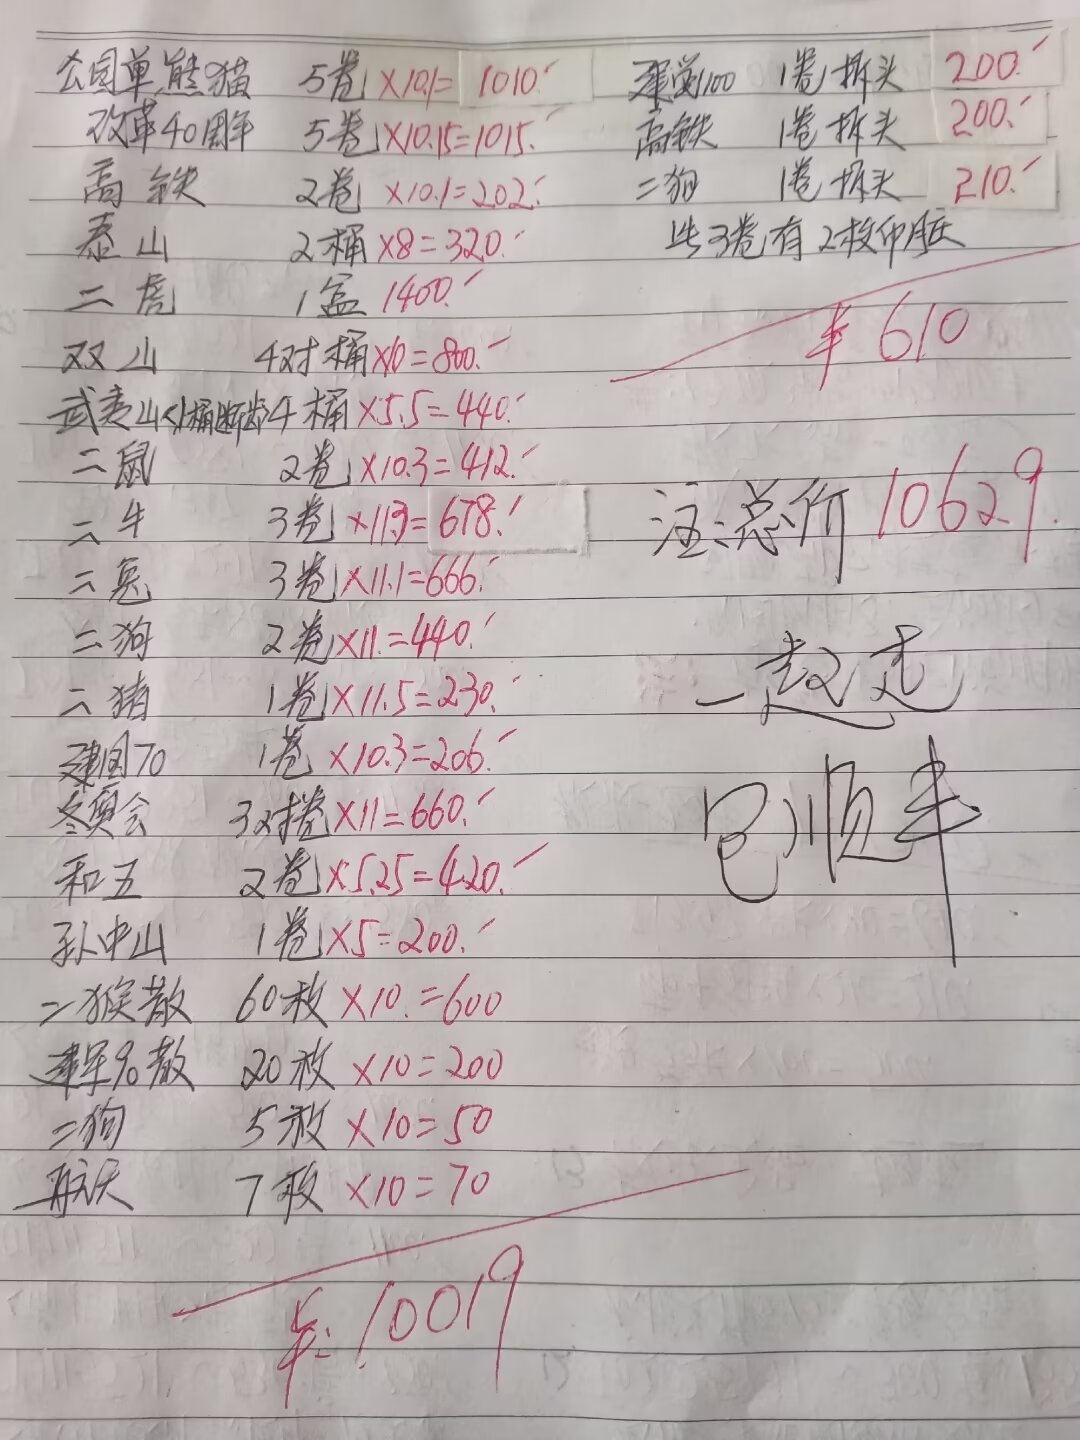 公园单熊猫 5卷×10.1=1010.
改革40周年 5卷×10.15=1015.
高铁 2卷×10.1=202.
泰山 2桶×8=320.
二虎 1盒 1400.
双山 4对桶×10=800.
武夷山<1桶断齿>4桶×5.5=440.
二鼠 2卷×10.3=412.
二牛 3卷×113=678.
二兔 3卷×11.1=666.
二狗 2卷×11.=440.
二猪 1卷×11.5=230.
建国70 1卷×10.3=206.
冬奥会 3对卷×11=660.
和五 2卷×5.25=420.
孙中山 1卷×5=200.
二猴散 60枚×10.=600
建军90散 20枚×10=200
二狗 5枚×10=50
航天 7枚×10=70
羊:10019
建党100 1卷拆头 200.
高铁 1卷拆头 200.
二狗 1卷拆头 210.
此3卷有2枚印脏
羊610
注:总价10629.
一起走
包顺丰